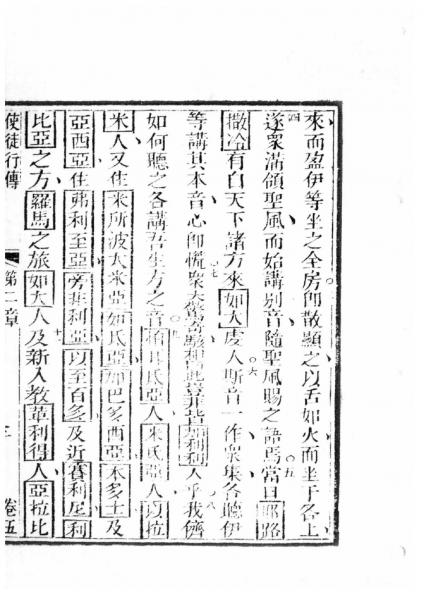 來而盈伊等坐之全房卽散顯之以舌如火而坐于各上
四
遂衆滿領聖風而始講別音隨聖風賜之語焉當日耶路
五
撒冷有自天下諸方來如大虔人斯音一作衆集各聽伊
六
等講其本音心卽慌衆大驚奇駭相
七
人乎我儕
八
如何聽之各講吾生方之音
九
氐亞人米氐亞人以拉
米人又住米所波大米亞如氐亞加巴多西亞本多士及
亞西亞住弗利至亞旁非利亞以至百多及近賽利尼利
十
比亞之方羅馬之旅如大人及新入教革利得人亞拉比
使徒行傳
第二章
三
卷五